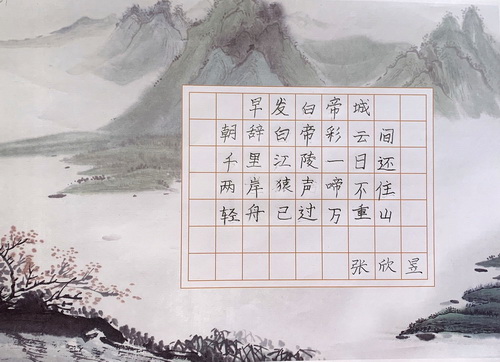 早发白帝城
朝辞白帝彩云间
千里江陵一日还
两岸猿声啼不住
轻舟已过万重山
张欣昱